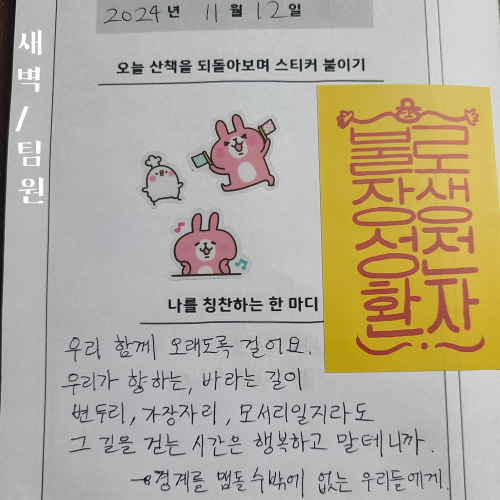 2024년 11월 12일
새벽/팀원
오늘 산책을 되돌아보며 스티커 붙이기
불로
장생
성전
환자
나를 칭찬하는 한 마디
우리 함께 오래도록 걸어요.
우리가 향하는, 바라는 길이
변두리, 가장자리, 모서리일지라도
그 길을 걷는 시간은 행복하고 말테니까.
→경계를 맴돌 수밖에 없는 우리들에게.